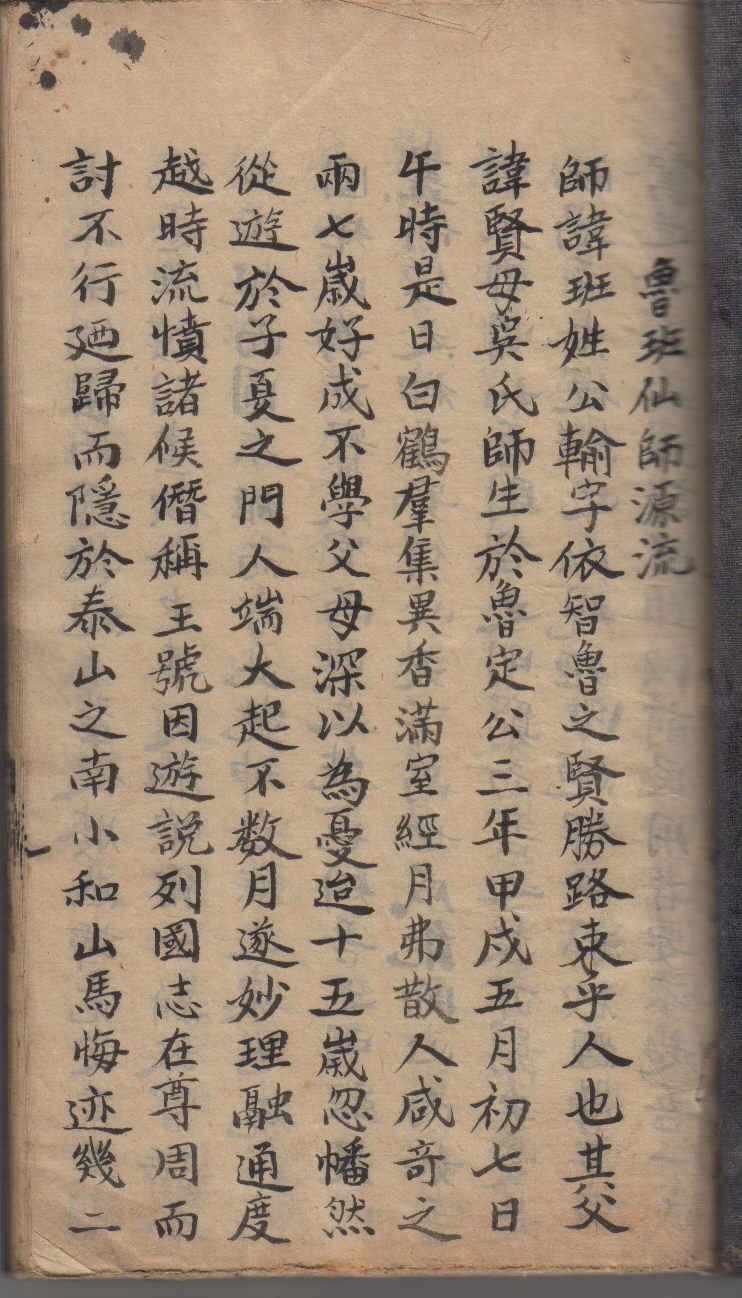 魯班仙師源流
師諱班姓公輸字依智魯之賢勝路東乎人也其父
諱賢母吳氏師生於魯定公三年甲戌五月初七日
午時是日白鶴羣集異香滿室經月弗散人咸奇之
兩七歲好成不學父母深以為憂迨十五歲忽幡然
從遊於子夏之門人端大起不数月遂妙理融通度
越時流憤諸候僭稱王號因遊説列國志在尊周而
討不行廼歸而隱於泰山之南小和山馬悔迹幾二